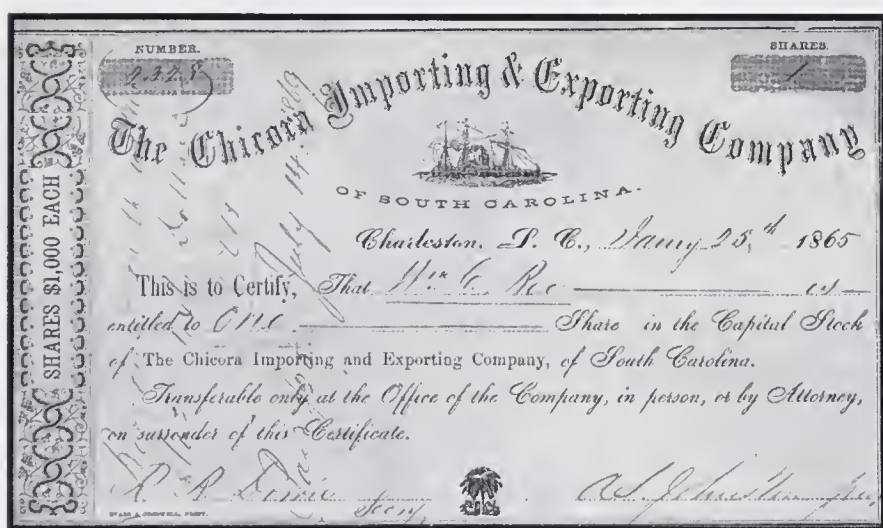 NUMBER.
SHARES.
1
The Chicora Importing & Exporting Company
OF SOUTH CAROLINA.
Charleston, S. C., Jany 25,th 1865
This is to Certify, That Wm C. Bee is
entitled to One Share in the Capital Stock
of The Chicora Importing and Exporting Company, of South Carolina.
Transferable only at the Office of the Company, in person, or by Attorney,
on surrender of this Certificate.
Secry
SHARES $1,000 EACH
July 14.